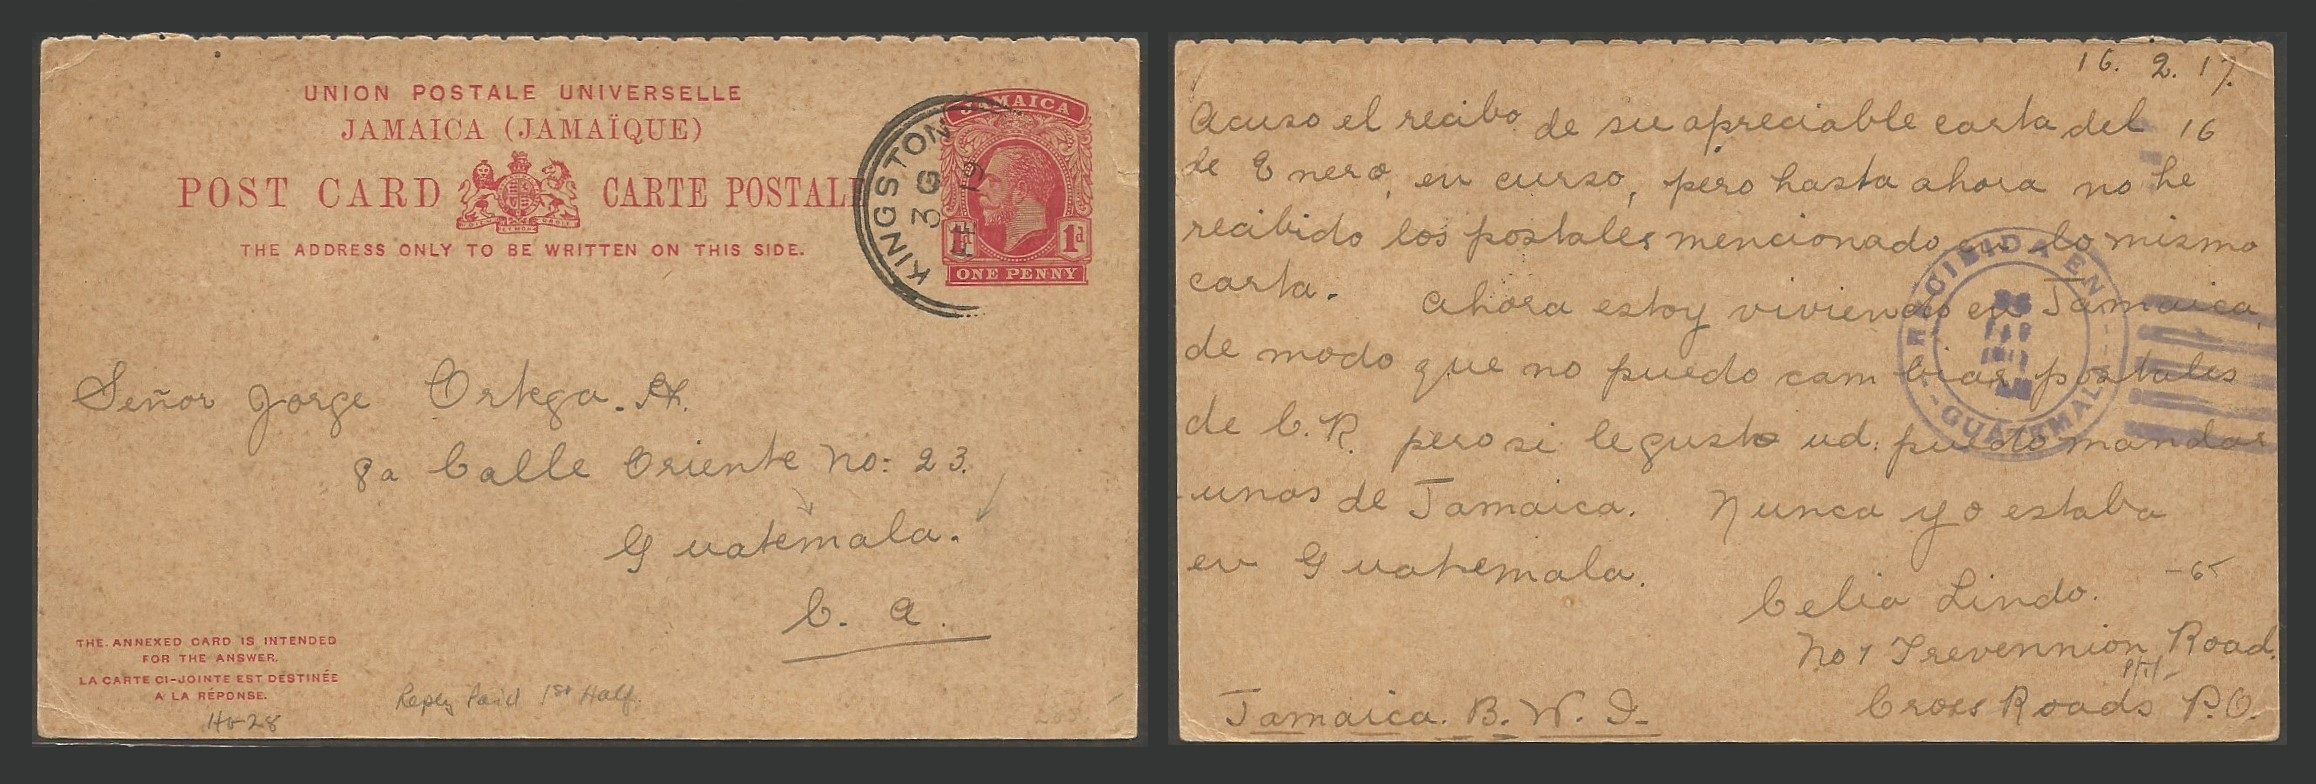 UNION POSTALE UNIVERSELLE
JAMAICA (JAMAÏQUE)
POST CARD CARTE POSTALE
THE ADDRESS ONLY TO BE WRITTEN ON THIS SIDE.
JAMAICA
1d 1d
ONE PENNY
KINGSTON
3 G
Señor Jorge Ortega. H.
8a Calle Oriente No: 23.
Guatemala.
C. A.
THE ANNEXED CARD IS INTENDED
FOR THE ANSWER.
LA CARTE CI-JOINTE EST DESTINÉE
A LA RÉPONSE.
H&G 28
Reply Paid 1st Half.
16. 2. 17.
Acuso el recibo de su apreciable carta del 16
de Enero, en curso, pero hasta ahora no he
recibido los postales mencionado en lo mismo
carta. Ahora estoy viviendo en Jamaica,
de modo que no puedo cambiar postales
de C.R. pero si le gusta ud. puedo mandar
unos de Jamaica. Nunca yo estaba
en Guatemala.
Celia Lindo.
No 1 Trevennion Road.
Cross Roads P.O.
Jamaica. B. W. I.
RECIBIDA EN
GUATEMALA